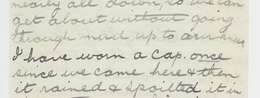 nearly all down, so we can
get about without going
through mud up to
I have worn a cap. once
since we came here & then
it rained & I spoilted it in